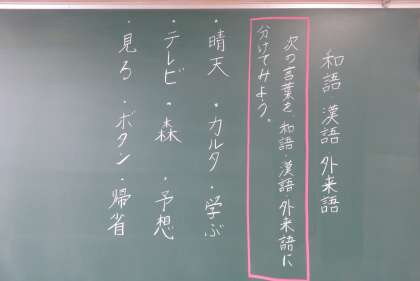 和語 漢語 外来語
次の言葉を、和語・漢語・外来語に
分けてみよう。
・晴天 ・カルタ ・学ぶ
・テレビ ・森 ・予想
・見る ・ボタン ・帰省